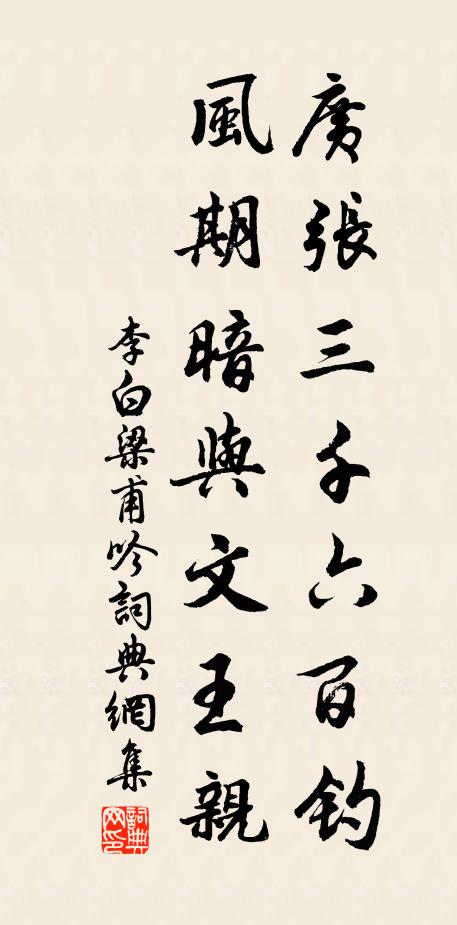 廣張三千六百鈎
風期暗與文王親
李白梁甫吟詞典網集
詞典网印